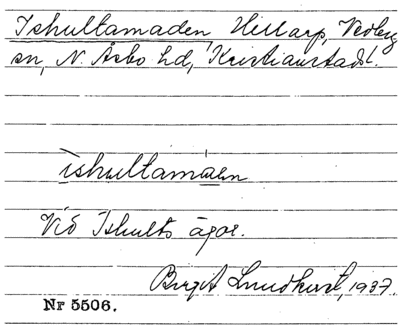 Ishultamaden, Hillarp, Vedby
sn, N. Åsbo hd, Kristianstads l.
ishultamaen
Vid Ishults ägor.
Birgit Lundkvist, 1937.
Nr 5506.